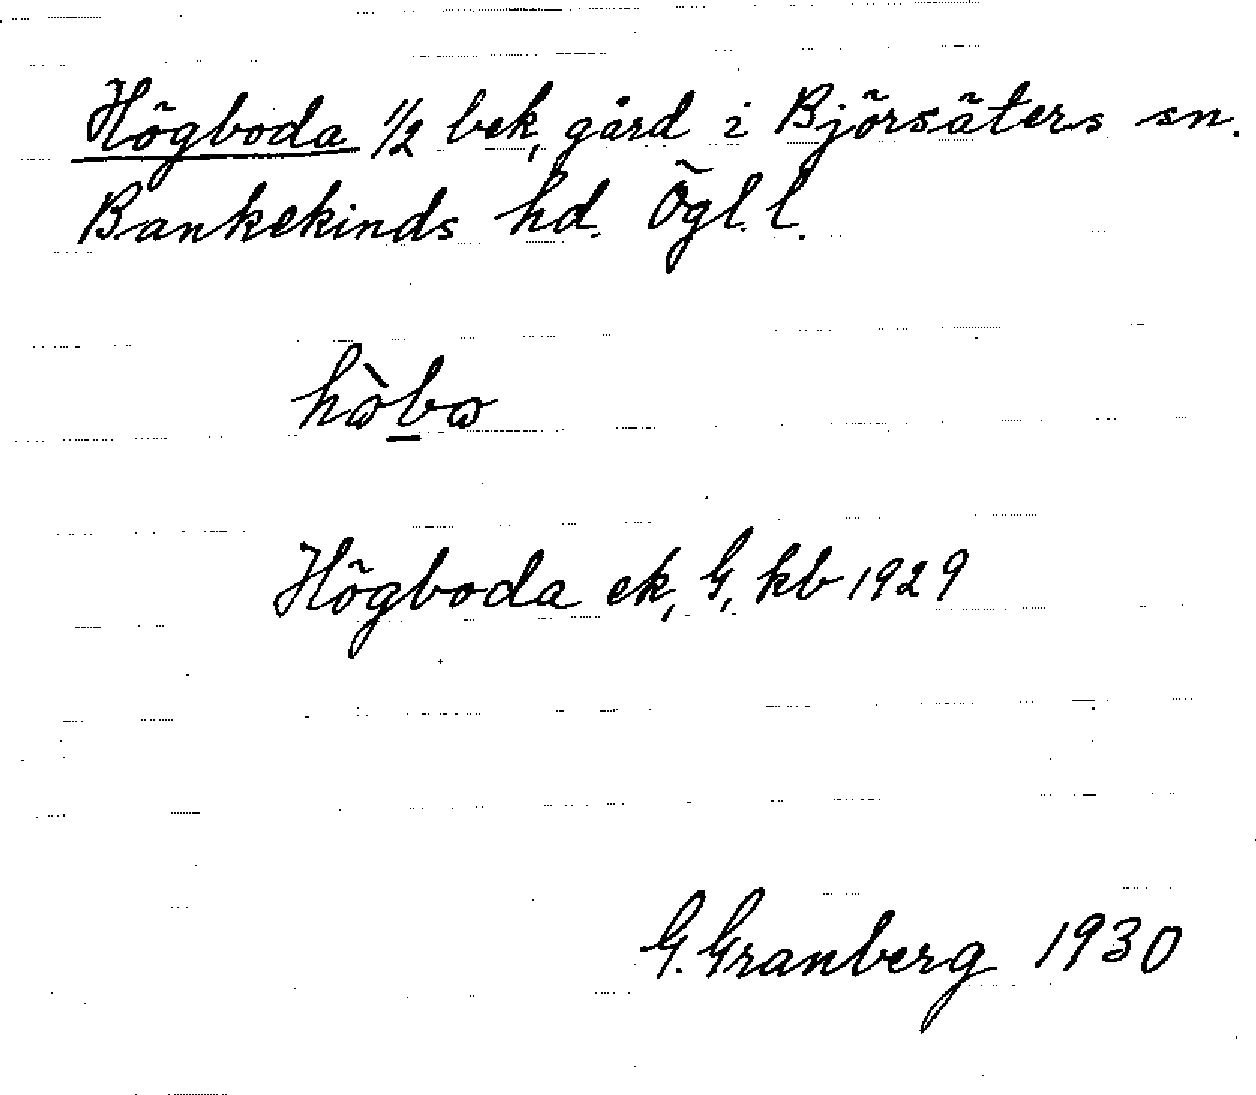 Högboda 1/2 bek, gård i Björsäters sn.
Bankekinds hd. Ögl. l.
hòbo
Högboda ek, G, kb 1929
G. Granberg 1930